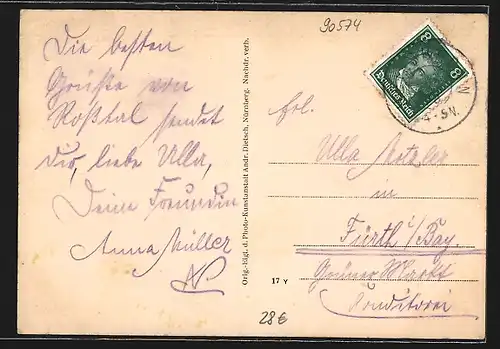 90574
Die besten
Grüße von
Roßtal sendet
dir, liebe Ulla,
Deine Freundin
Anna Müller
Orig.-Eigt. d. Photo-Kunstanstalt Andr. Dietsch, Nürnberg. Nachdr. verb.
17 Y
28€
8 8
Deutsches Reich
N
-5N.
Frl.
Ulla
in
Fürth i/Bay.
Grüner Markt
Conditorei